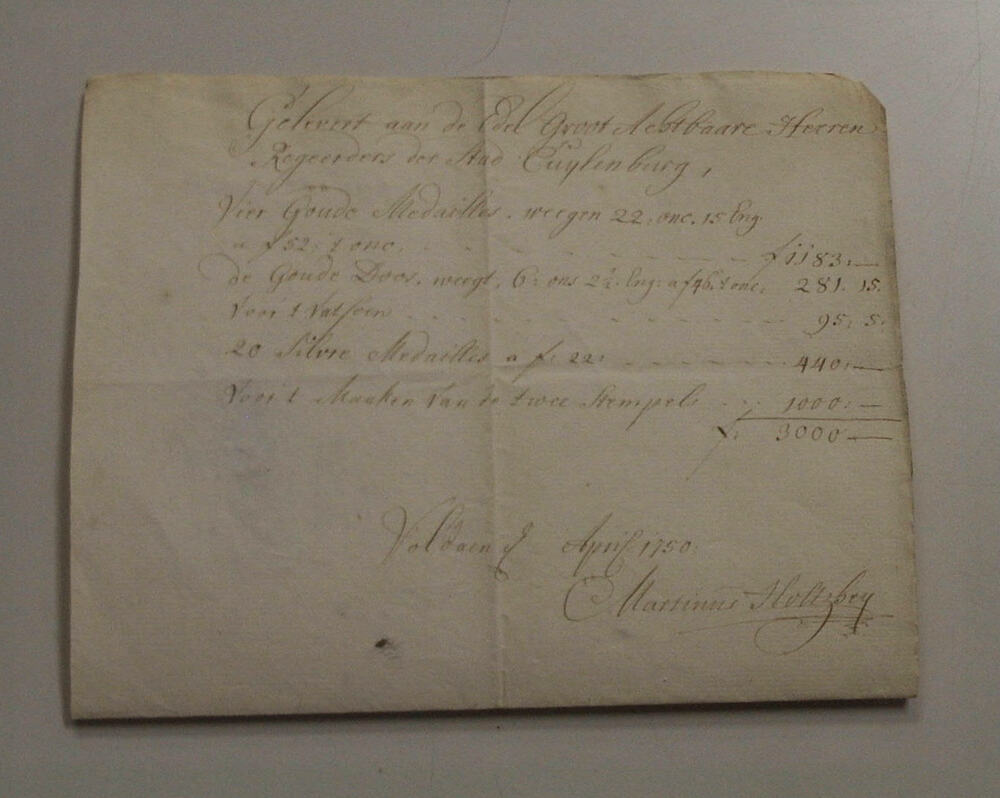 Gelevert aan de Edel Groot Achtbaare Heeren
Regeerders der Stad Cuÿlenburg,
Vier Goude Medailles, weegen 22: onc. 15 Eng.
a f 52: 't onc. f 1183:—
de Goude Doos, weegt, 6: ons 2½: Eng: a f 46: 't onc: 281. 15.
Voor 't Fatsoen 95: 5:
20 Silvre Medailles a f: 22: 440:—
Voor 't Maaken Van de twee Stempels 1000:—
f: 3000—
Voldaen April 1750:
Martinus Holtzheÿ